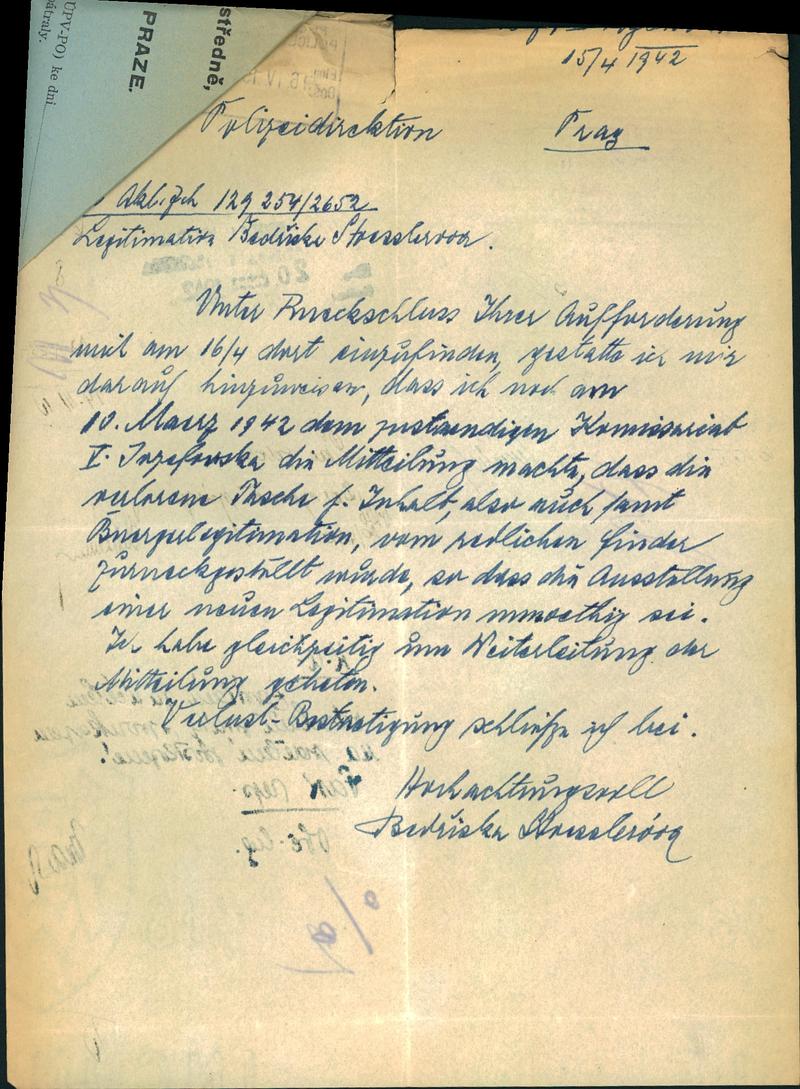 UPV-PO) ke dni
átraly.
PRAZE.
středně,
15/4 1942
Polizeidirektion Prag
Akt. Zch 129 254/2652
Legitimation Bedřiška Stresslerova.
Unter Rueckschluss Ihrer Aufforderung
mich am 16/4 dort einzufinden, gestatte ich mir
darauf hinzuweisen, dass ich noch am
10. Maerz 1942 dem zustaendigen Komissariat
V. Josefovska die Mitteilung machte, dass die
verlorene Tasche s. Inhalt, also auch samt
Buergerlegitimation, vom redlichen Finder
zurueckgestellt wurde, so dass die Ausstellung
einer neuen Legitimation unnoethig sei.
Ich habe gleichzeitig um Weiterleitung der
Mitteilung gebeten.
Verlust-Bestaetigung schliesse ich bei.
Hochachtungsvoll
Bedřiška